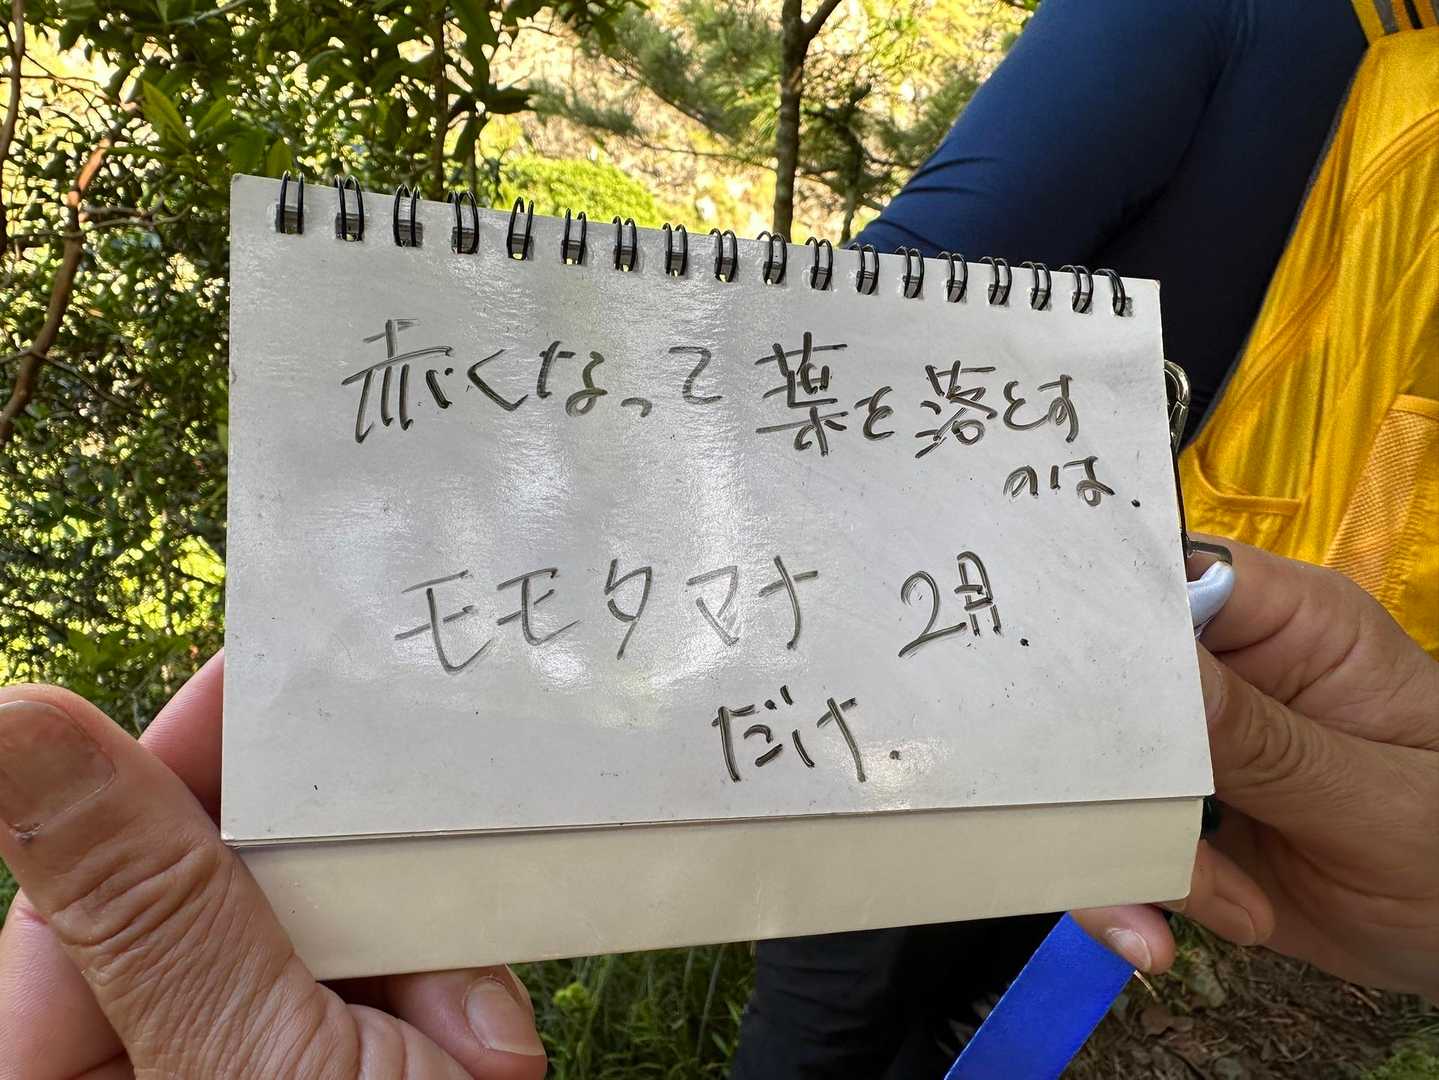 赤くなって葉を落とす
のは.
モモタマナ 2月.
だけ.